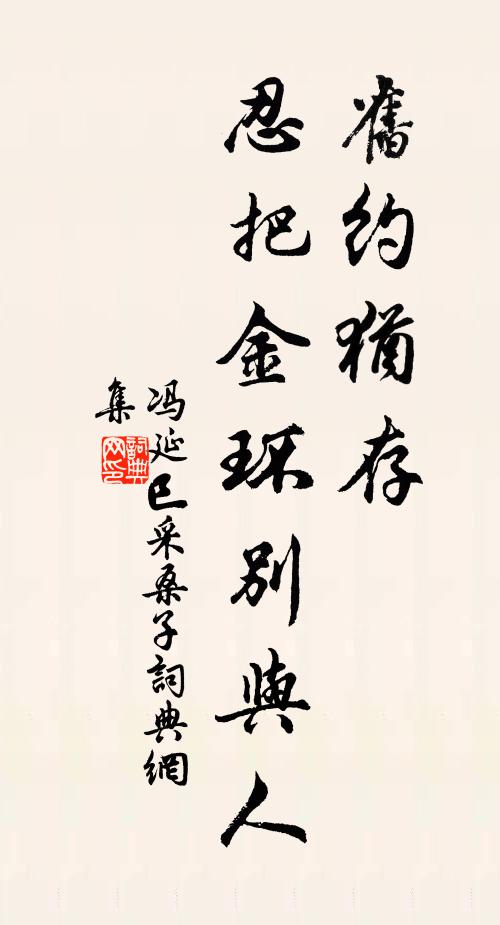 舊約猶存
忍把金环別與人
冯延巳采桑子詞典網
集
詞典网印